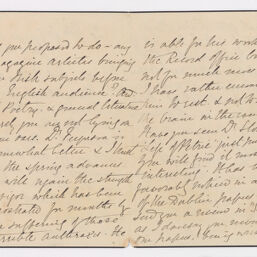 you proposed to do - any
magazine articles bringing
Irish subjects before
English audience? And
Poetry & general literature
are you not lying on
your oars. Dr. Sigerson is
somewhat better & I trust
the spring advances
will again the strength
vigor which has been
prostrated for months by
the suffering of those
terrible anthrax. He
is able for his work
the Record Office but
not for much more
I have rather
him to rest & not to
the brain in the
Have you seen Dr.
Life of Petrie just
you will find it most
interesting. It has
favorably noticed in a
of the Dublin papers
send you a review in
as I dare say you
our papers.